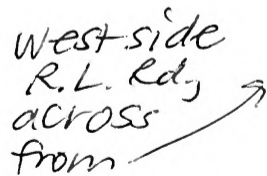 west side
R.L. Rd,
across
from